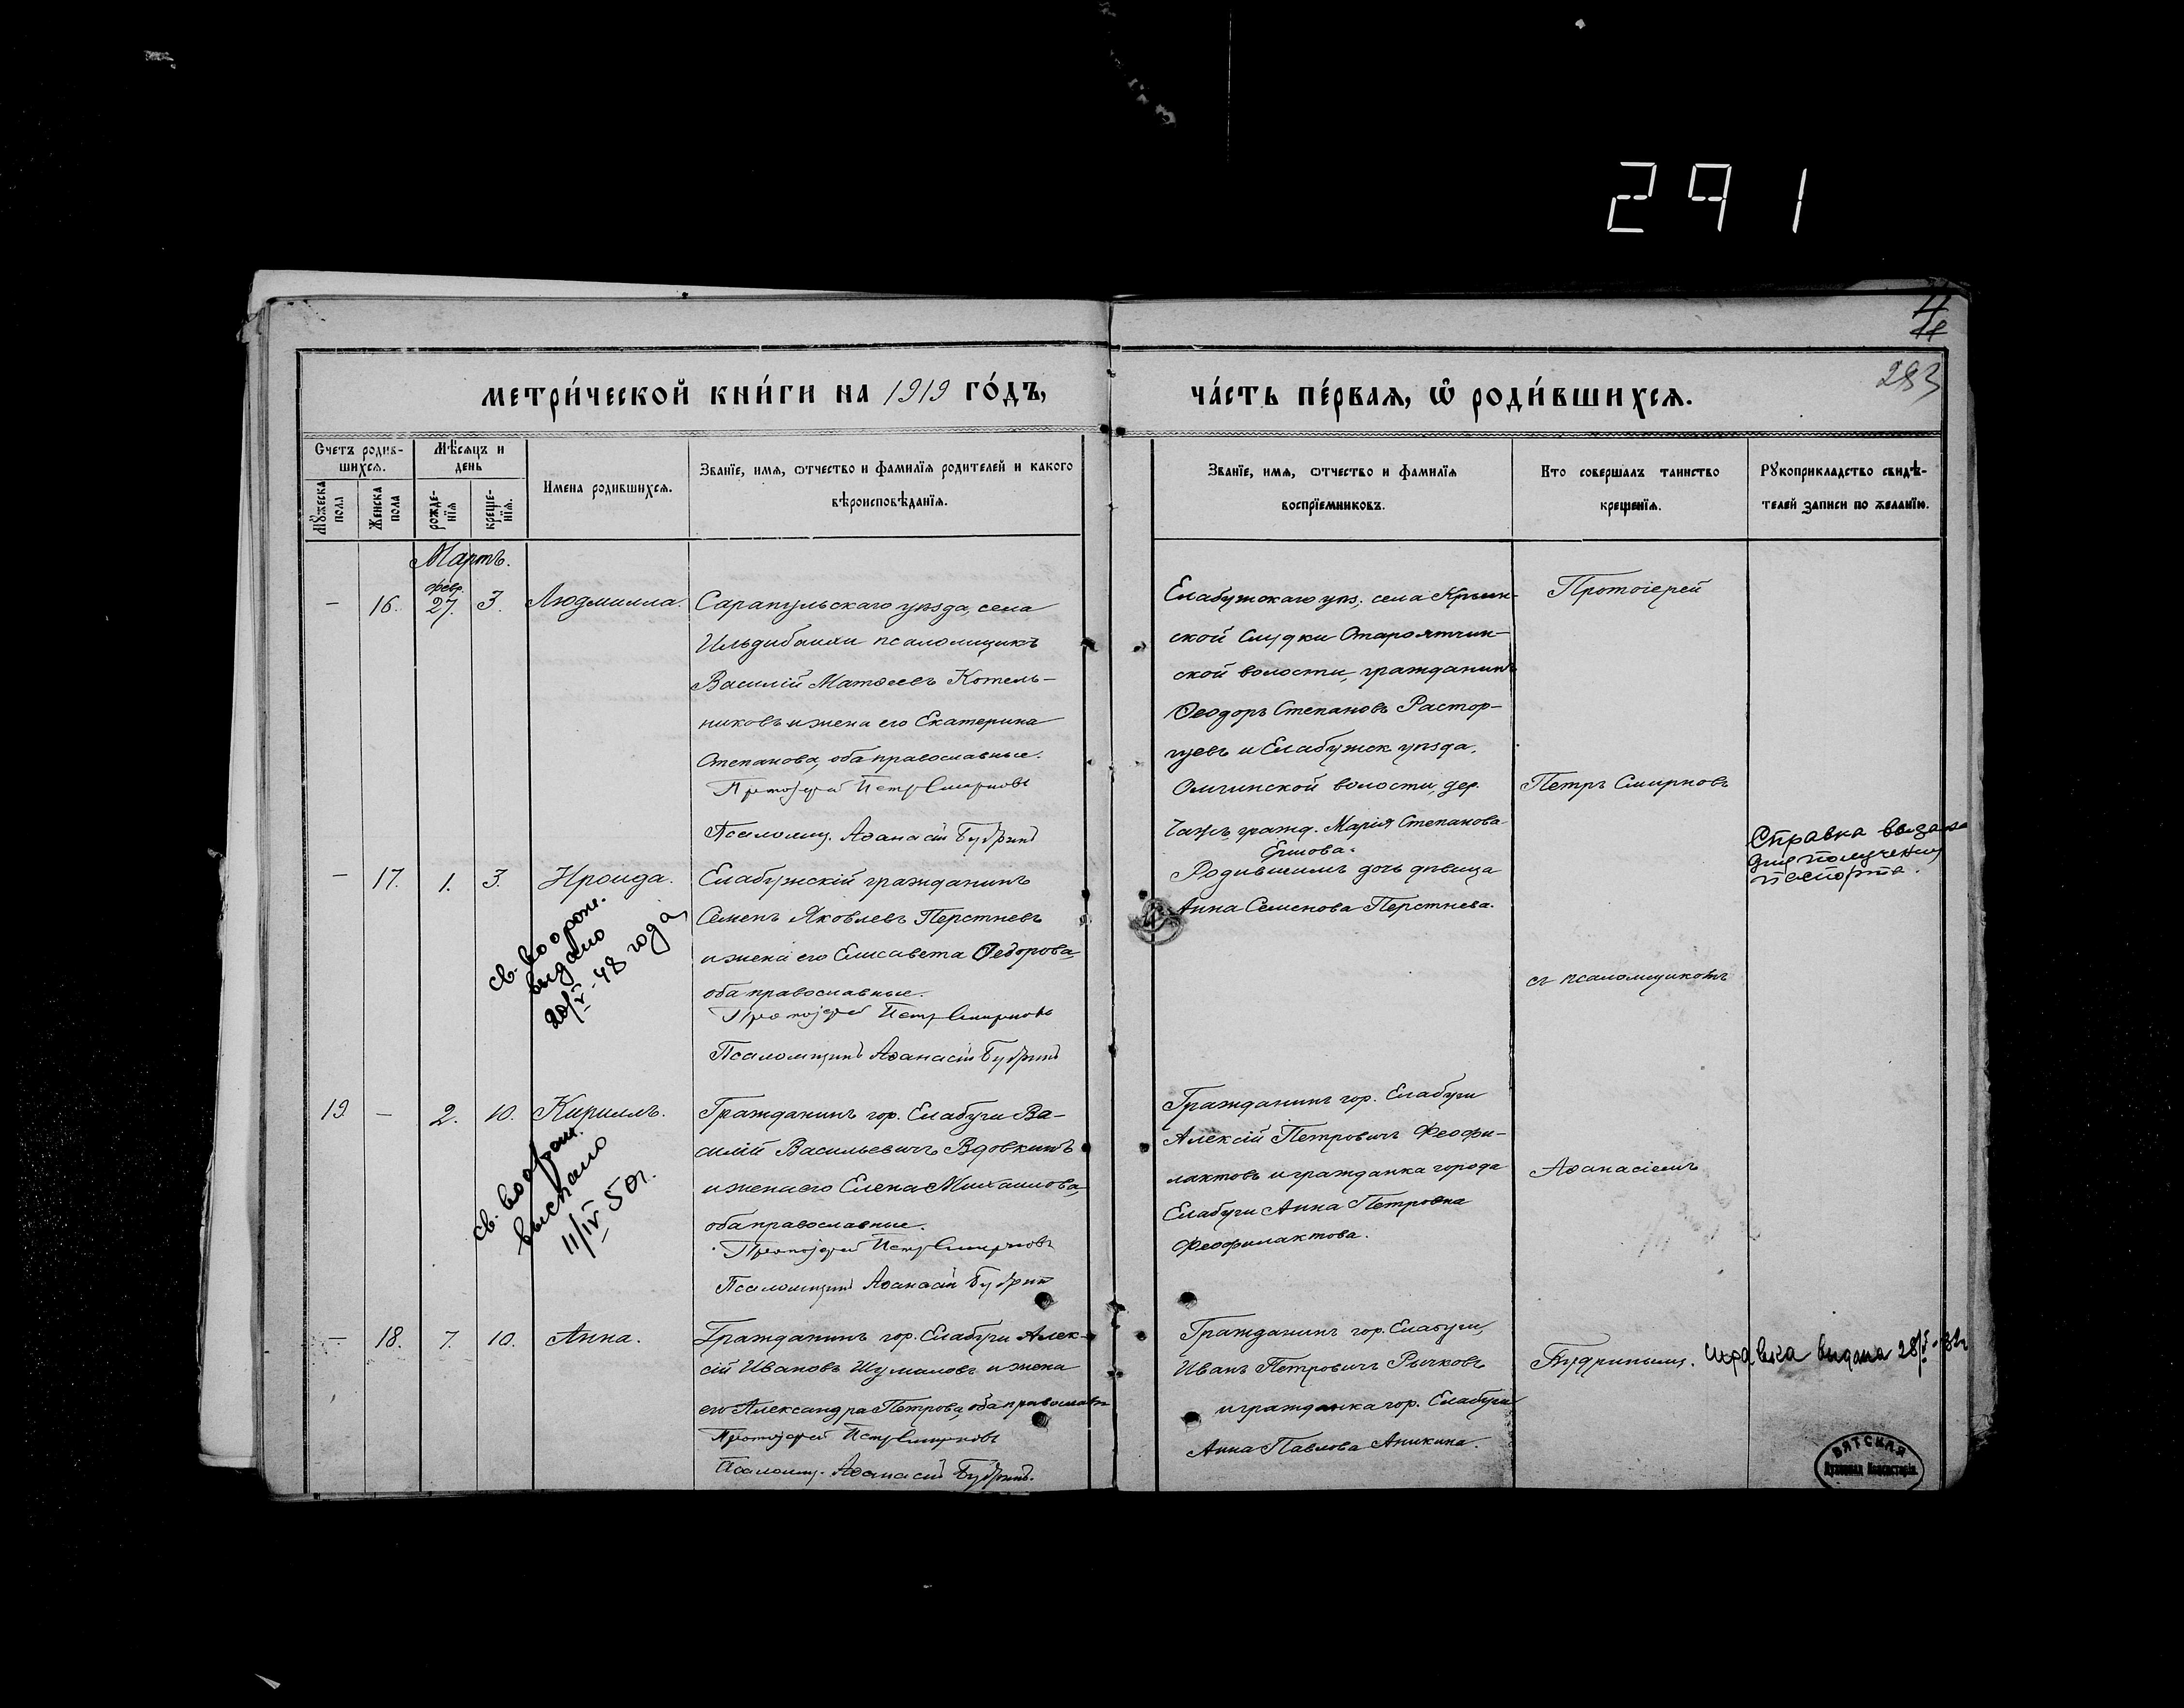 291
4
283
МЕТРИ́ЧЕСКОЙ КНИ́ГИ НА 1919 ГО́ДЪ,
ЧА́СТЬ ПЕ́РВАЯ, Ѡ РОДИ́ВШИХСЯ.
Счетъ родив-
шихся.
Мѣсяцъ и
день
Имена родившихся.
Званїе, имя, ѡтчество и фамилїя родителей и какого
вѣроисповѣданїя.
Мꙋжеска
пола
Женска
пола
рожде-
нїя
креще-
нїя.
Званїе, имя, ѡтчество и фамилїя
воспрїемниковъ.
Кто совершалъ таинство
крещенїя.
Рꙋкоприкладство свидѣ-
телей записи по желанїю.
Мартъ.
февр.
— 16. 27. 3. Людмилла.
Сарапульскаго уѣзда, села
Ильдибаихи псаломщикъ
Василій Матѳеевъ Котель-
никовъ и жена его Екатерина
Степанова, оба православные.
Протоіерей Петръ Смирновъ
Псаломщ. Аѳанасій Будринъ
Елабужскаго уѣз. села Крын-
ской Слудки Старояшин-
ской волости, гражданинъ
Ѳеодоръ Степановъ Растор-
гуевъ и Елабужск уѣзда,
волости, дер.
гражд. Марія Степанова
Ершова.
Протоіерей
Петръ Смирновъ
— 17. 1. 3. Ираида.
Елабужскій гражданинъ
Семенъ Яковлевъ Перстневъ
и жена его Елисавета Ѳедорова,
оба православные.
Протоіерей Петръ Смирновъ
Псаломщикъ Аѳанасій Будринъ
св. во о рож.
выдано
20/V - 48 года
Родившимъ дочь дѣвица
Анна Семенова Перстнева.
съ псаломщикомъ
Справка выдана
для получения
паспорта.
19. — 2. 10. Кириллъ.
Гражданинъ гор. Елабуги Ва-
силій Васильевичъ Вдовкинъ
и жена его Елена Михаилова,
оба православные.
Протоіерей Петръ Смирновъ
Псаломщикъ Аѳанасій Будринъ
св. во о рож.
выслано
11/IV 50г.
Гражданинъ гор. Елабуги
Алексій Петровичъ Феофи-
лактовъ и гражданка города
Елабуги Анна Петровна
Феофилактова.
Аѳанасіемъ
— 18. 7. 10. Анна.
Гражданинъ гор. Елабуги Алек-
сій Ивановъ Шумиловъ и жена
его Александра Петрова, оба православн
Протоіерей Петръ Смирновъ
Псаломщ. Аѳанасій Будринъ.
Гражданинъ гор. Елабуги,
Иванъ Петровичъ Рычковъ
и гражданка гор. Елабуги
Анна Павлова Аникина.
Будринымъ.
справка выдана
ВЯТСКАЯ
Духовная Консисторія